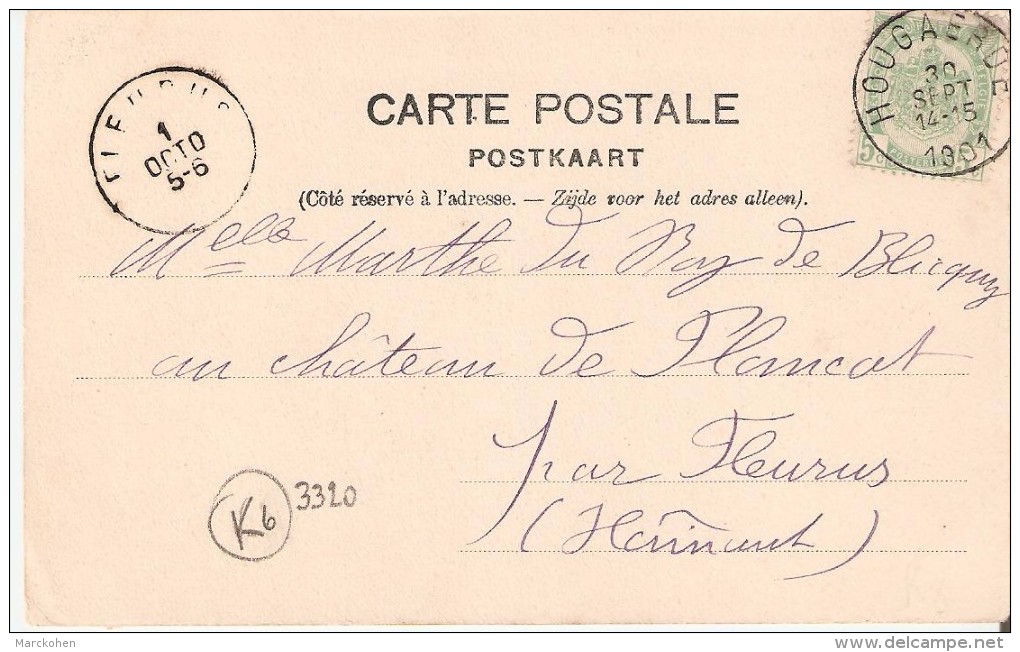 CARTE POSTALE
POSTKAART
(Côté réservé à l'adresse. — Zijde voor het adres alleen).
FLEURUS
1
OCTO
5-6
HOUGAERDE
30
SEPT
14-15
1901
5
Melle Marthe du Roy de Blicquy
au château de Plancat
par Fleurus
(Hainaut)
K6
3320
Marckohen
delcampe.net